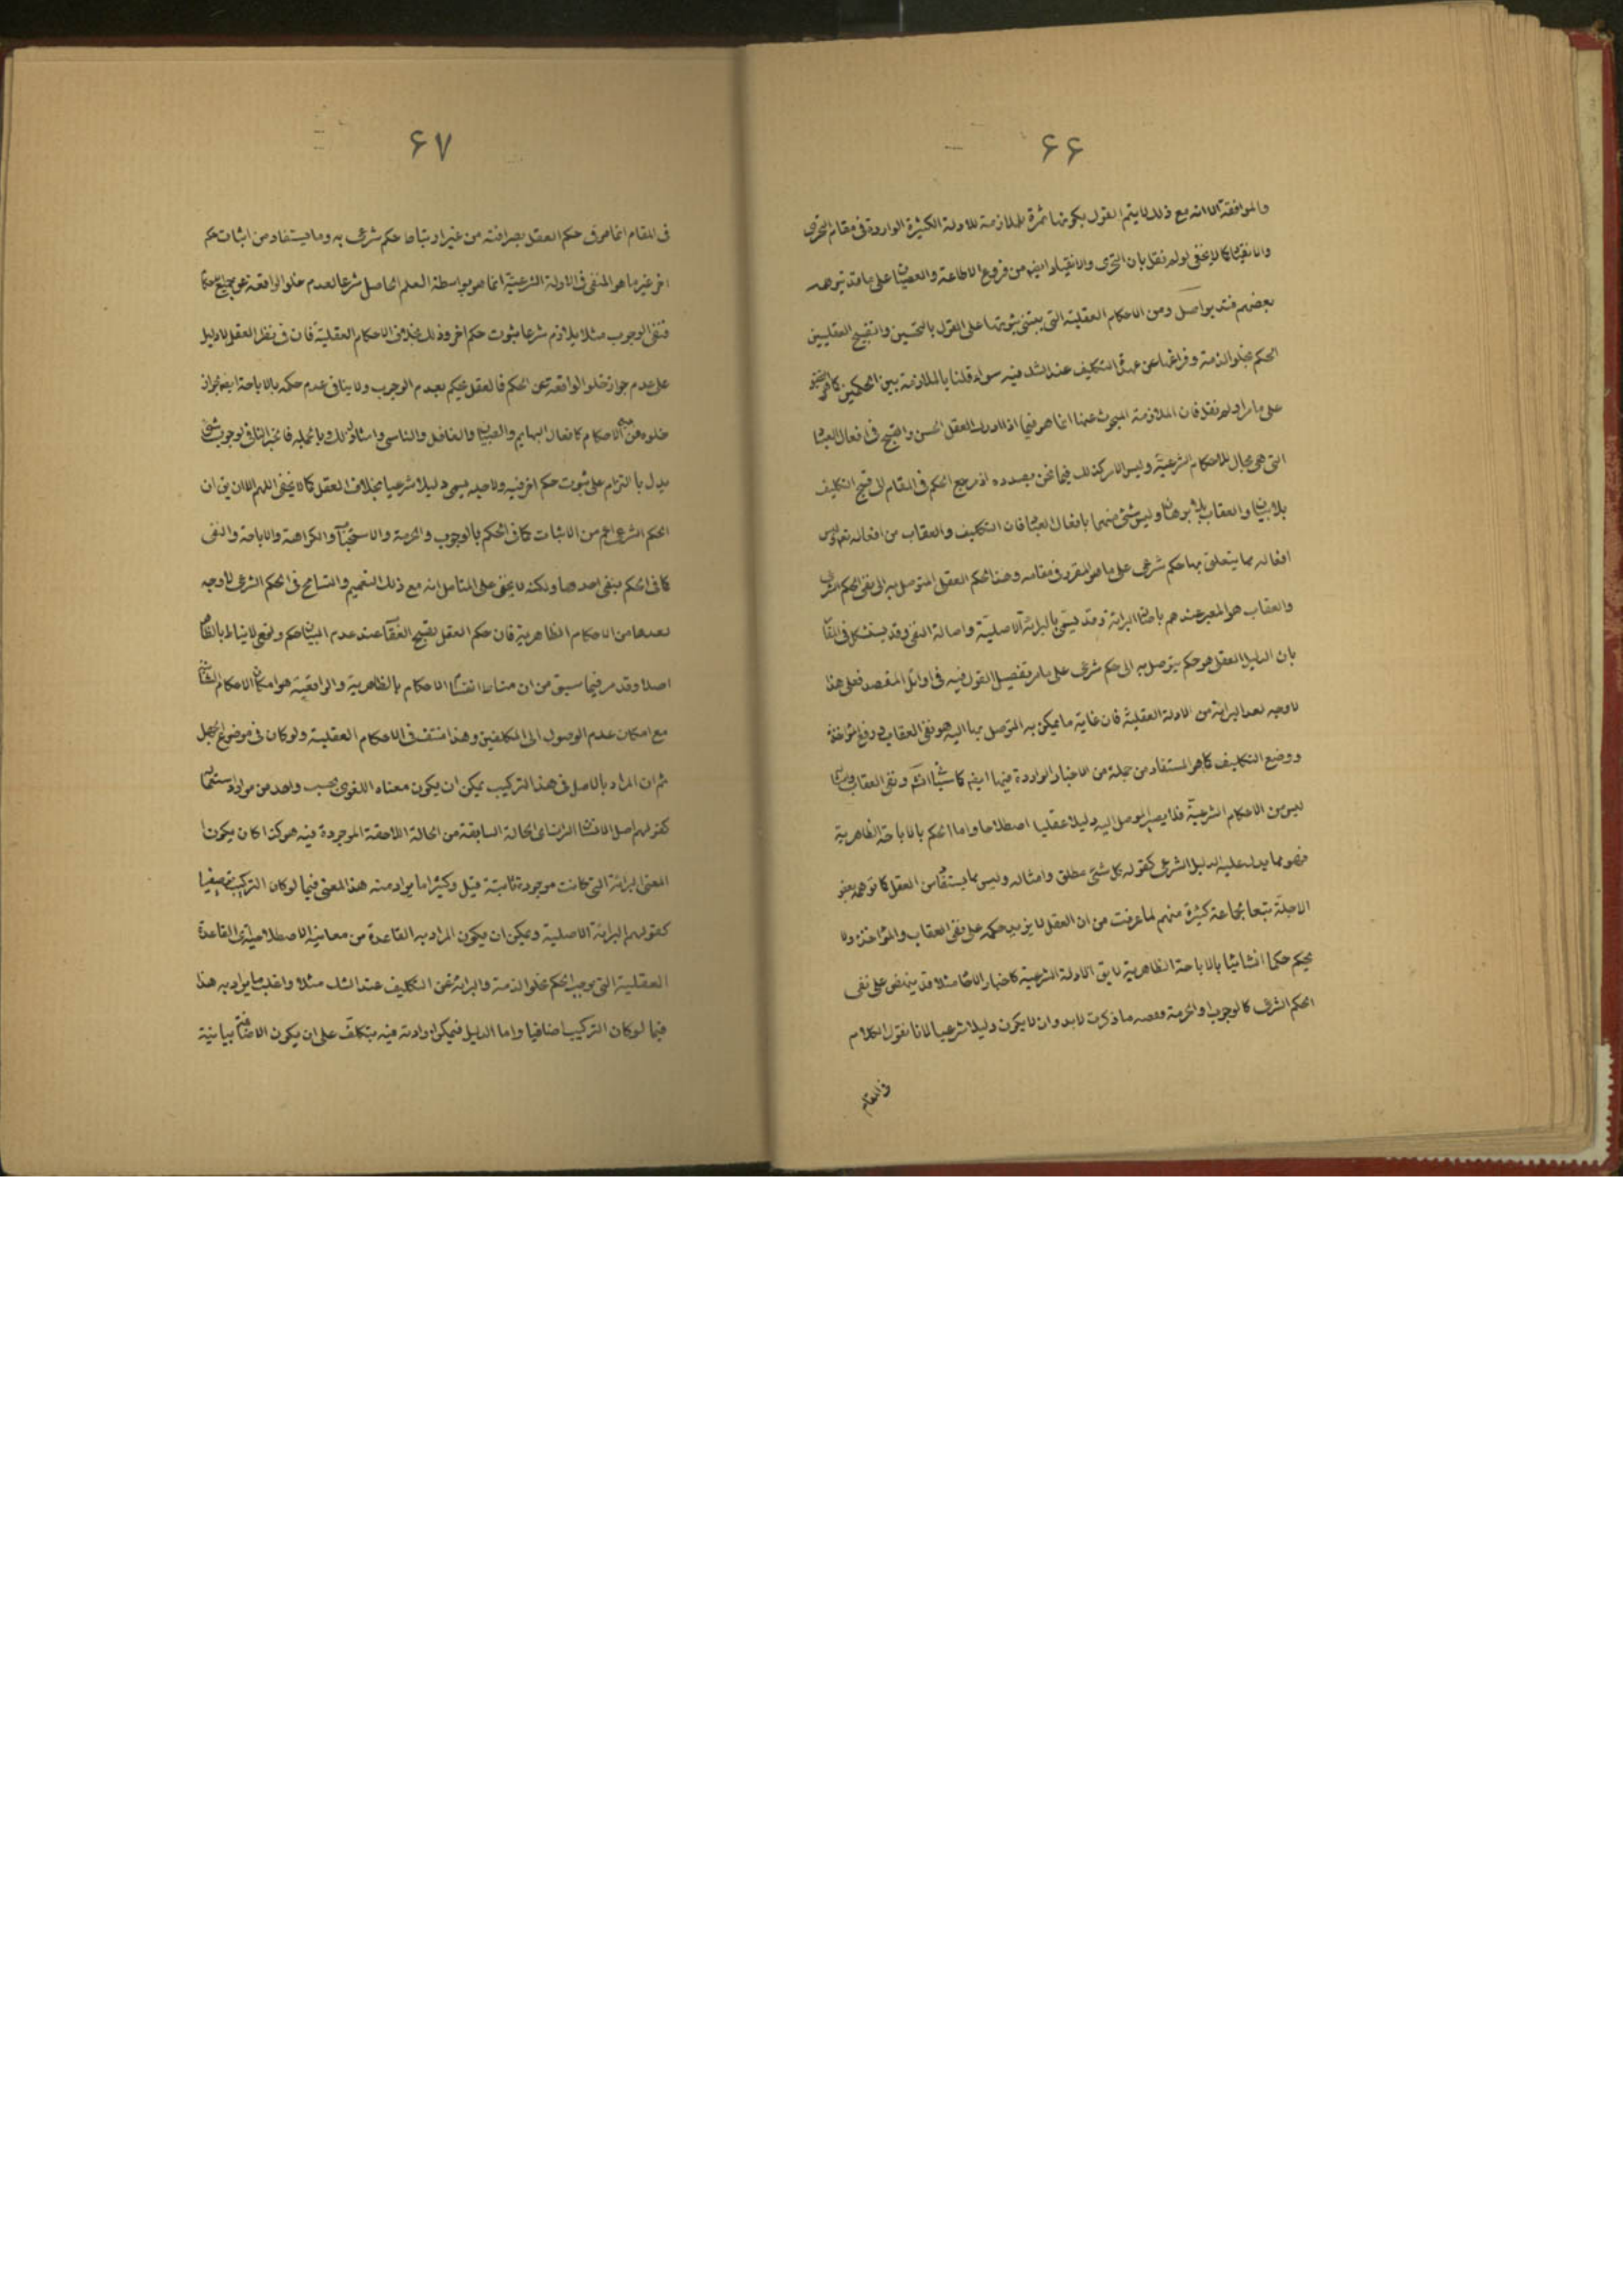 ۶۶
والموافقة الا انه مع ذلك لا يتم القول بكونها ثمرة للملازمة للادلة الكثيرة الواردة فى مقام التجرى
والانقياد كما لا يخفى لو لم نقل بان التجرى والانقياد ايضا من فروع الاطاعة والعصيان على ما قد توهمه
بعضهم فتدبر اصل ومن الاحكام العقلية التى يبتنى ثبوتها على القول بالتحسين والتقبيح العقليين
الحكم بخلو الذمة وفراغها عن عهدة التكليف عند الشك فيه سواء قلنا بالملازمة بين الحكمين كما هو
على ما مر او لم نقل فان الملازمة المبحوث عنها انما هو فيما اذا ادرك العقل الحسن والقبح فى افعال العباد
التى هى مجال للاحكام الشرعية وليس الامر كذلك فيما نحن بصدده اذ مرجع الحكم فى المقام الى قبح التكليف
بلا بيان والعقاب بلا برهان وليس شئ منهما بافعال العباد فان التكليف والعقاب من افعاله تعالى وليس
افعاله مما يتعلق بها حكم شرعى على ما هو المقرر فى مقامه وهذا الحكم العقلى المتوصل به الى نفى الحكم الشرعى
والعقاب هو المعبر عندهم باصالة البرائة وقد يسمى بالبرائة الاصلية واصالة النفى وقد يستشكل فى المقام
بان الدليل العقلى هو حكم يتوصل به الى حكم شرعى على ما مر تفصيل القول فيه فى اوائل المقصد فعلى هذا
لا وجه لعد البرائة من الادلة العقلية فان غاية ما يمكن به التوصل بها اليه هو نفى العقاب ورفع المؤاخذة
ووضع التكليف كما هو المستفاد من جملة من الاخبار الواردة فيها ايضا كما سيأتى انشاء الله ونفى العقاب
ليس من الاحكام الشرعية فلا يصير الموصل اليه دليلا عقليا اصطلاحا واما الحكم بالاباحة الظاهرية
فهو مما يدل عليه الدليل الشرعى كقوله كل شئ مطلق وامثاله وليس مما يستفاد من العقل كما توهمه بعض
الاجلة تبعا لجماعة كثيرة منهم لما عرفت من ان العقل لا يزيد حكمه على نفى العقاب والمؤاخذة ولا
يحكم حكما انشائيا بالاباحة الظاهرية لا يق الادلة الشرعية كاخبار الاحاد مثلا قد ينهض على نفى
الحكم الشرعى كالوجوب او الحرمة وقضية ما ذكرت لابد وان لا يكون دليلا شرعيا لانا نقول الكلام
فى المقام
۶۷
فى المقام انما هو فى حكم العقل بصرافته من غير ارتباط حكم شرعى به وما يستفاد من اثبات حكم
اخر غير ما هو المنفى فى الادلة الشرعية انما هو بواسطة العلم الحاصل شرعا لعدم خلو الواقعة عن جميع الاحكام
فنفى الوجوب مثلا يلازم شرعا ثبوت حكم اخر وذلك بخلاف الاحكام العقلية فان فى نظر العقل لا دليل
على عدم جواز خلو الواقعة عن الحكم فالعقل يحكم بعدم الوجوب ولا ينافى عدم حكمه بالاباحة ايضا لجواز
خلوه عن الاحكام كافعال البهايم والصبيان والغافل والناسى وامثال ذلك وبالجملة فالخبر النافى لوجوب شئ
يدل بالتزام على ثبوت حكم اخر فيه ولاجله يسمى دليلا شرعيا بخلاف العقل كما لا يخفى اللهم الا ان يق ان
الحكم الشرعى اعم من الاثبات كما فى الحكم بالوجوب والحرمة والاستحباب والكراهة والاباحة والنفى
كما فى الحكم بنفى احدها ولكنه لا يخفى على المتامل انه مع ذلك التعميم والتسامح فى الحكم الشرعى لا وجه
لعدها من الاحكام الظاهرية فان حكم العقل بقبح العقاب عند عدم البيان حكم واقعى لا يناط بالظاهر
اصلا وقد مر فيما سبق من ان مناط انقسام الاحكام بالظاهرية والواقعية هو امكان الاحكام
مع امكان عدم الوصول الى المكلفين وهذا منتف فى الاحكام العقلية ولو كان فى موضوع مجهل
ثم ان المراد بالاصل فى هذا التركيب يمكن ان يكون معناه اللغوى بحسب واحد من موارد استعماله
كقولهم اصل الانسان التراب اى الحالة السابقة من الحالة اللاحقة الموجودة فيه هو كذا كان يكون
المعنى البرائة التى كانت موجودة ثابتة قبل وكثيرا ما يراد منه هذا المعنى فيما لو كان التركيب توصيفيا
كقولهم البرائة الاصلية ويمكن ان يكون المراد به القاعدة من معانيه الاصطلاحية اى القاعدة
العقلية التى يوجب الحكم بخلو الذمة والبرائة عن التكليف عند الشك مثلا واغلب ما يراد به هذا
فيما لو كان التركيب اضافيا واما الدليل فيمكن ارادته فيه بتكلف على ان يكون الاضافة بيانية